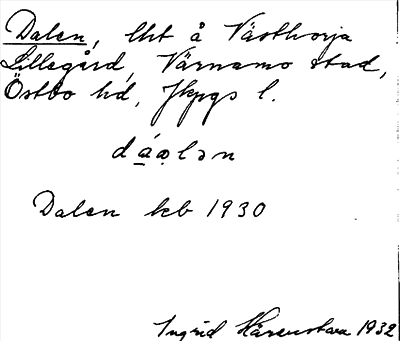 Dalen, lht å Västhorja
Lillegård, Värnamo stad,
Östbo hd, Jkpgs l.
dáɷlən
Dalen kb 1930
Ingrid Härenstam 1932